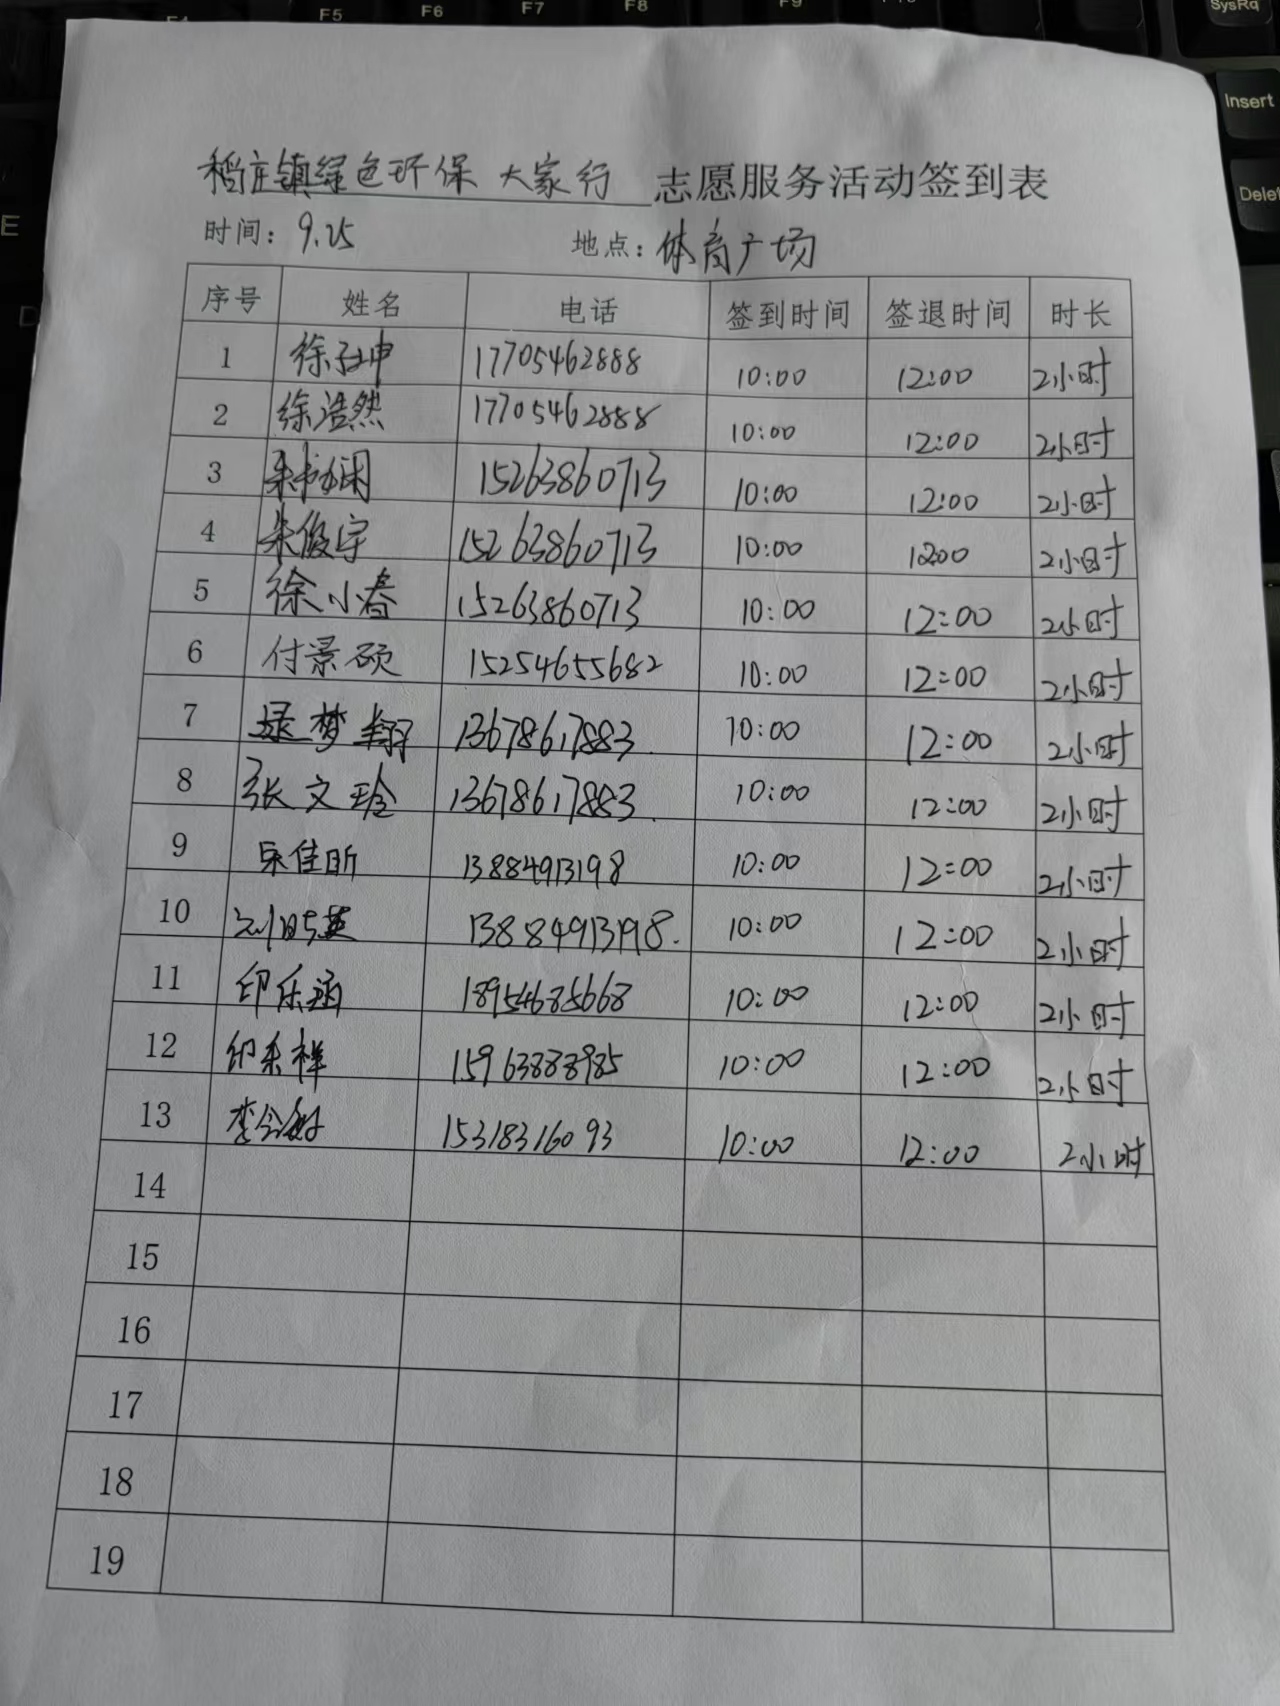 F5 F6 F7 F8 F9 SysRq
Insert
Delet
E
D
稻庄镇绿色环保 大家行 志愿服务活动签到表
时间: 9.25 地点: 体育广场
序号 姓名 电话 签到时间 签退时间 时长
1 徐 坤 17705462888 10:00 12:00 2小时
2 徐浩然 17705462888 10:00 12:00 2小时
3 15263860713 10:00 12:00 2小时
4 朱俊宇 15263860713 10:00 12:00 2小时
5 徐小春 15263860713 10:00 12:00 2小时
6 付景硕 15254655682 10:00 12:00 2小时
7 梦翔 13678617883. 10:00 12:00 2小时
8 张文玲 13678617883. 10:00 12:00 2小时
9 佳昕 13884913198 10:00 12:00 2小时
10 刘 英 13884913198. 10:00 12:00 2小时
11 印乐涵 18954685668 10:00 12:00 2小时
12 印 祥 15963888985 10:00 12:00 2小时
13 李 15318316093 10:00 12:00 2小时
14
15
16
17
18
19